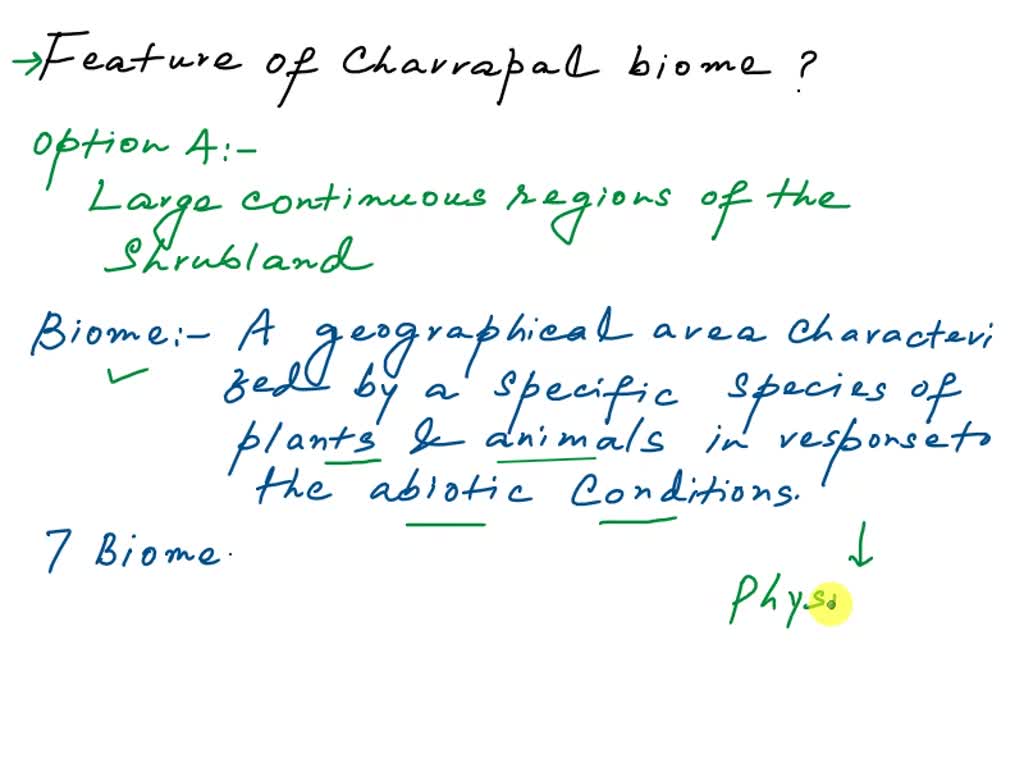 →Feature of Charrapal biome ?
Option A:-
Large continuous regions of the
Shrubland
Biome:- A geographical area Characteri
zed by a specific species of
plants & animals in response to
the abiotic Conditions.
7 Biome.
↓
Physi